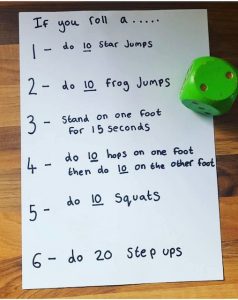 If you roll a .....
1 - do 10 Star Jumps
2 - do 10 frog Jumps
3 - Stand on one foot
for 15 seconds
4 - do 10 hops on one foot
then do 10 on the other foot
5 - do 10 Squats
6 - do 20 Step ups